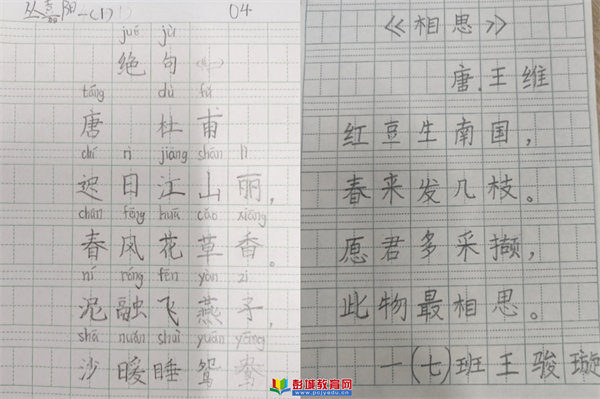 一(1) 04
jué jù
绝句(一)
táng dù fǔ
唐 杜甫
chí rì jiāng shān lì
迟日江山丽，
chūn fēng huā cǎo xiāng
春风花草香。
ní róng fēi yàn zi
泥融飞燕子，
shā nuǎn shuì yuān yāng
沙暖睡鸳鸯
《相思》
唐.王维
红豆生南国，
春来发几枝。
愿君多采撷，
此物最相思。
一(七)班王骏璇
彭城教育网
www.pcjyedu.cn